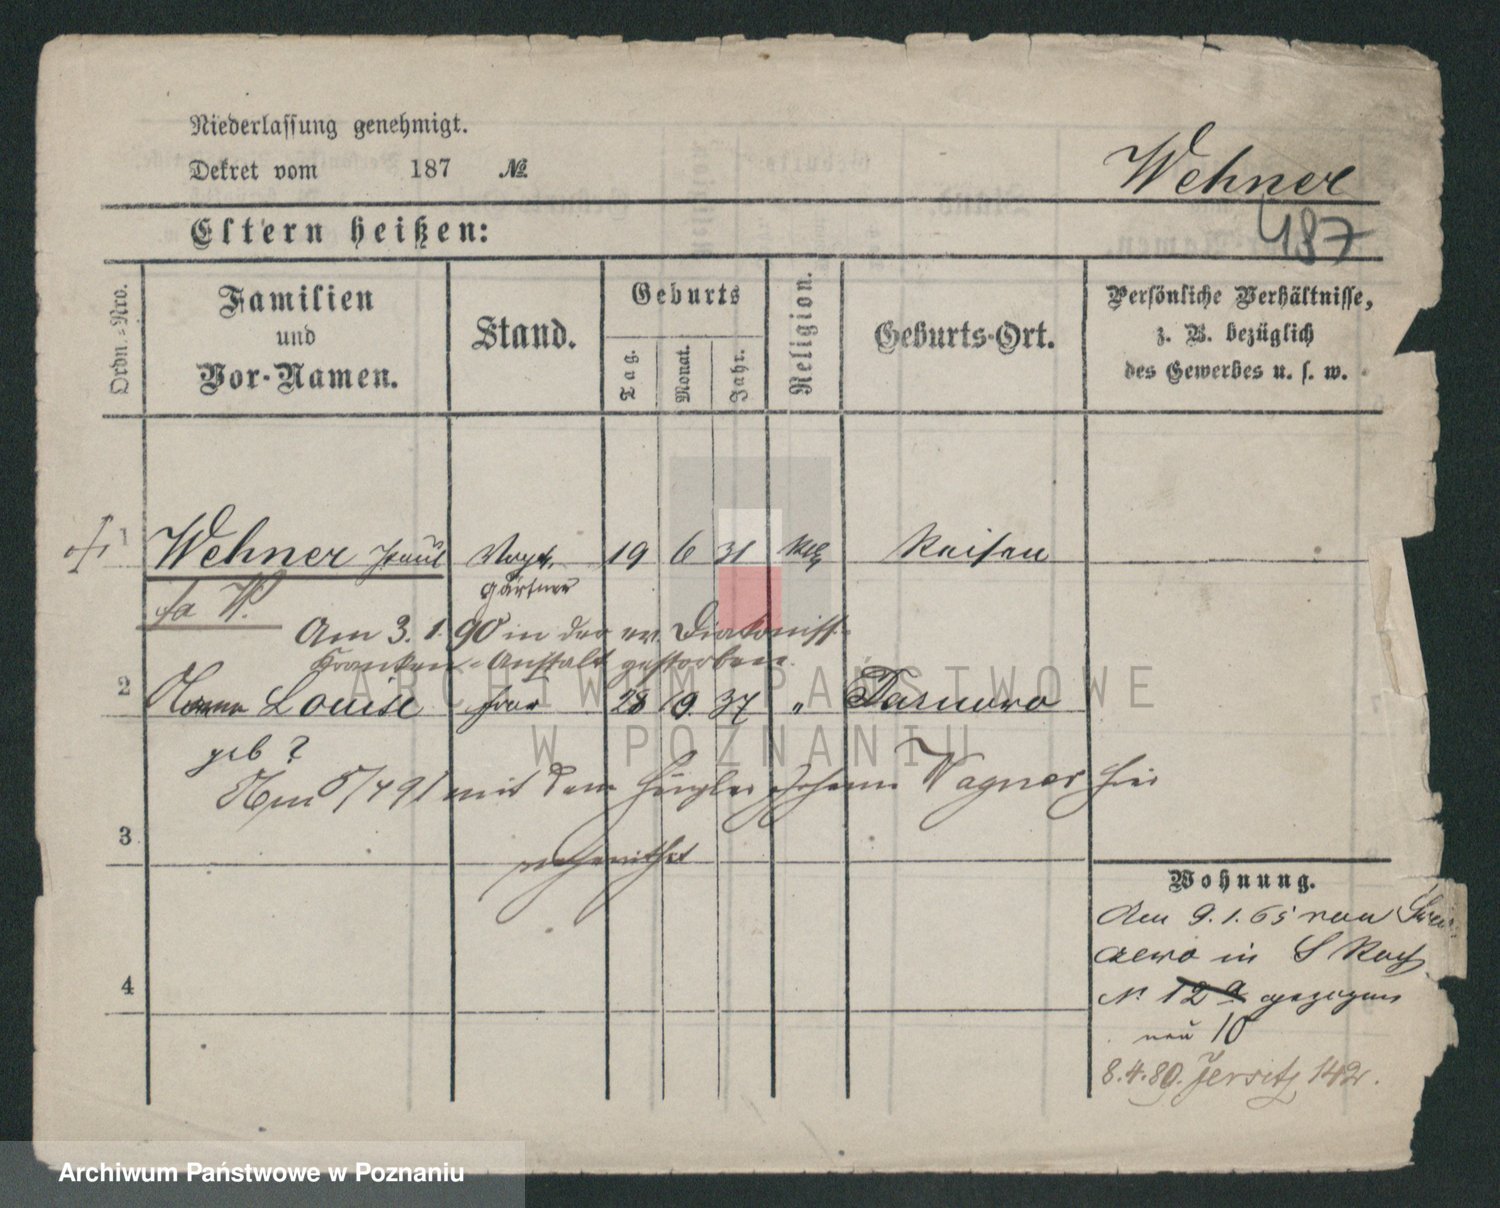 Niederlassung genehmigt.
Dekret vom 187 №
Wehner
487
Eltern heißen:
Ordn.-Nro.
Familien
und
Vor-Namen.
Stand.
Geburts
Tag.
Monat.
Jahr.
Religion.
Geburts-Ort.
Persönliche Verhältnisse,
z. B. bezüglich
des Gewerbes u. s. w.
1 Wehner Paul Vogt 19 6 31 Reisen
Gärtner
Am 3. 1. 90 in der ev. Diakoniss.
Kranken-Anstalt gestorben.
2 Louise Frau 28 9. 37 " Darnowo
geb ?
Am 5/4 91 mit dem Johann Wagner hier
verheirathet
3
4
Wohnung.
Am 9. 1. 65 von
in S Roch
N. 12 a gezogen
neu 10
8. 4. 80. Jersitz 142.
ARCHIWUM PAŃSTWOWE
W POZNANIU
Archiwum Państwowe w Poznaniu